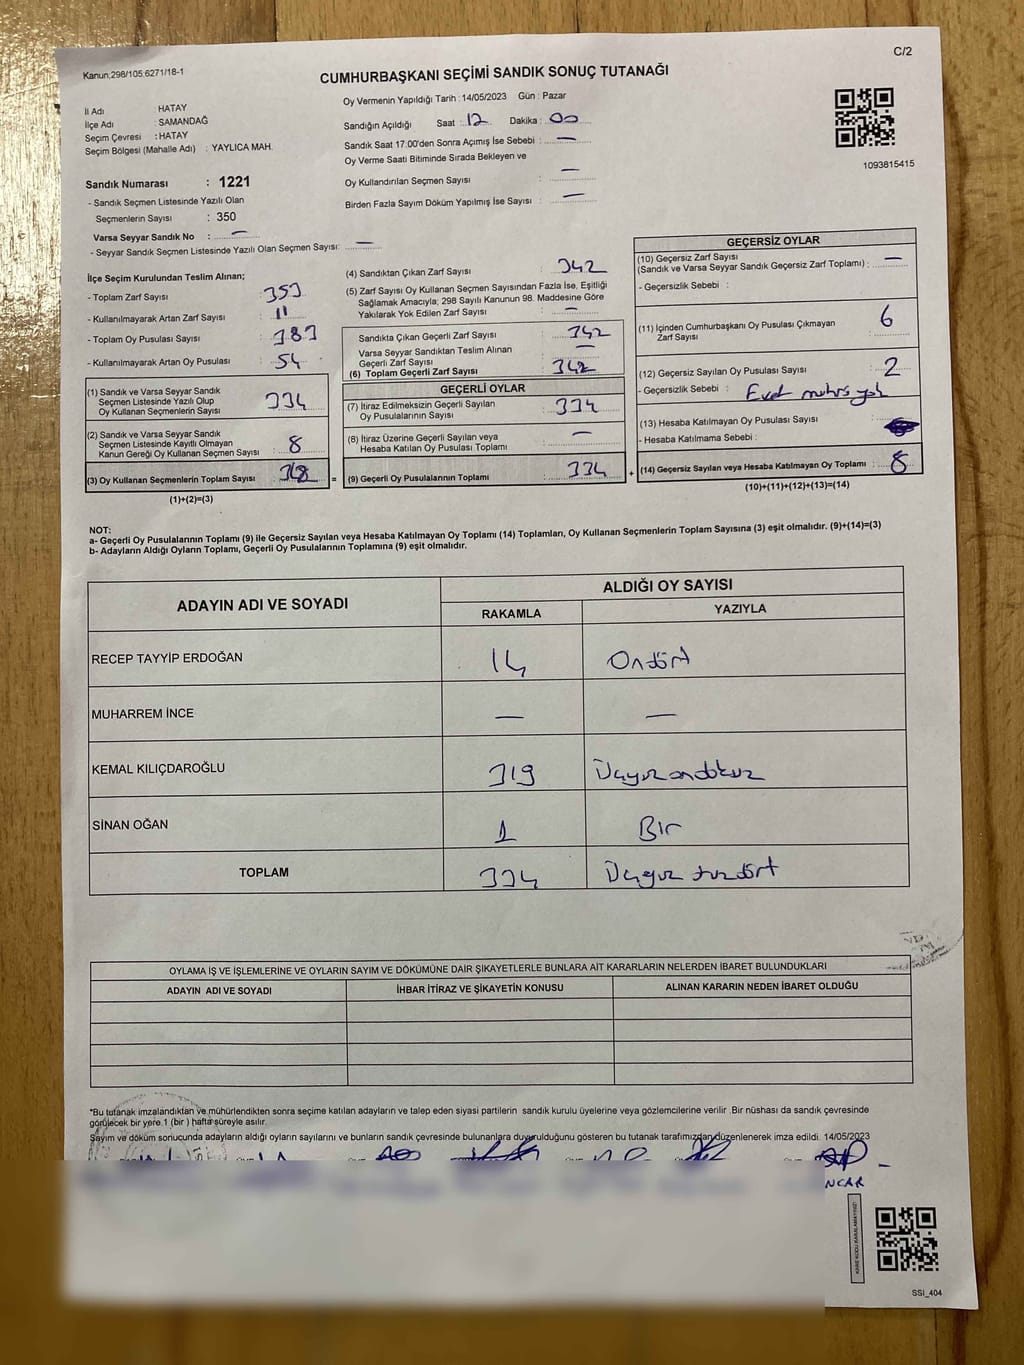 Kanun;298/105,6271/18-1
C/2
CUMHURBAŞKANI SEÇİMİ SANDIK SONUÇ TUTANAĞI
İl Adı : HATAY
İlçe Adı : SAMANDAĞ
Seçim Çevresi : HATAY
Seçim Bölgesi (Mahalle Adı) : YAYLICA MAH.
Oy Vermenin Yapıldığı Tarih : 14/05/2023 Gün : Pazar
Sandığın Açıldığı Saat : 12 Dakika : 00
Sandık Saat 17:00'den Sonra Açımış İse Sebebi : —
Oy Verme Saati Bitiminde Sırada Bekleyen ve
Oy Kullandırılan Seçmen Sayısı : —
Birden Fazla Sayım Döküm Yapılmış İse Sayısı : —
1093815415
Sandık Numarası : 1221
- Sandık Seçmen Listesinde Yazılı Olan
Seçmenlerin Sayısı : 350
Varsa Seyyar Sandık No : —
- Seyyar Sandık Seçmen Listesinde Yazılı Olan Seçmen Sayısı: —
İlçe Seçim Kurulundan Teslim Alınan;
- Toplam Zarf Sayısı : 353
- Kullanılmayarak Artan Zarf Sayısı : 11
- Toplam Oy Pusulası Sayısı : 383
- Kullanılmayarak Artan Oy Pusulası : 54
(1) Sandık ve Varsa Seyyar Sandık
Seçmen Listesinde Yazılı Olup
Oy Kullanan Seçmenlerin Sayısı : 334
(2) Sandık ve Varsa Seyyar Sandık
Seçmen Listesinde Kayıtlı Olmayan
Kanun Gereği Oy Kullanan Seçmen Sayısı : 8
(3) Oy Kullanan Seçmenlerin Toplam Sayısı :
(1)+(2)=(3)
(4) Sandıktan Çıkan Zarf Sayısı : 342
(5) Zarf Sayısı Oy Kullanan Seçmen Sayısından Fazla İse, Eşitliği
Sağlamak Amacıyla; 298 Sayılı Kanunun 98. Maddesine Göre
Yakılarak Yok Edilen Zarf Sayısı : —
Sandıkta Çıkan Geçerli Zarf Sayısı : 342
Varsa Seyyar Sandıktan Teslim Alınan
Geçerli Zarf Sayısı : —
(6) Toplam Geçerli Zarf Sayısı : 342
GEÇERLİ OYLAR
(7) İtiraz Edilmeksizin Geçerli Sayılan
Oy Pusulalarının Sayısı : 334
(8) İtiraz Üzerine Geçerli Sayılan veya
Hesaba Katılan Oy Pusulası Toplamı : —
= (9) Geçerli Oy Pusulalarının Toplamı : 334 +
GEÇERSİZ OYLAR
(10) Geçersiz Zarf Sayısı
(Sandık ve Varsa Seyyar Sandık Geçersiz Zarf Toplamı) : —
- Geçersizlik Sebebi :
(11) İçinden Cumhurbaşkanı Oy Pusulası Çıkmayan
Zarf Sayısı : 6
(12) Geçersiz Sayılan Oy Pusulası Sayısı : 2
- Geçersizlik Sebebi : Evet mührü yok
(13) Hesaba Katılmayan Oy Pusulası Sayısı :
- Hesaba Katılmama Sebebi :
(14) Geçersiz Sayılan veya Hesaba Katılmayan Oy Toplamı : 8
(10)+(11)+(12)+(13)=(14)
NOT:
a- Geçerli Oy Pusulalarının Toplamı (9) ile Geçersiz Sayılan veya Hesaba Katılmayan Oy Toplamı (14) Toplamları, Oy Kullanan Seçmenlerin Toplam Sayısına (3) eşit olmalıdır. (9)+(14)=(3)
b- Adayların Aldığı Oyların Toplamı, Geçerli Oy Pusulalarının Toplamına (9) eşit olmalıdır.
ADAYIN ADI VE SOYADI
ALDIĞI OY SAYISI
RAKAMLA YAZIYLA
RECEP TAYYİP ERDOĞAN 14 Ondört
MUHARREM İNCE — —
KEMAL KILIÇDAROĞLU 319 Üçyüzondokuz
SİNAN OĞAN 1 Bir
TOPLAM 334 Üçyüz otuzdört
OYLAMA İŞ VE İŞLEMLERİNE VE OYLARIN SAYIM VE DÖKÜMÜNE DAİR ŞİKAYETLERLE BUNLARA AİT KARARLARIN NELERDEN İBARET BULUNDUKLARI
ADAYIN ADI VE SOYADI İHBAR İTİRAZ VE ŞİKAYETİN KONUSU ALINAN KARARIN NEDEN İBARET OLDUĞU
*Bu tutanak imzalandıktan ve mühürlendikten sonra seçime katılan adayların ve talep eden siyasi partilerin sandık kurulu üyelerine veya gözlemcilerine verilir .Bir nüshası da sandık çevresinde
görülecek bir yere 1 (bir ) hafta süreyle asılır.
Sayım ve döküm sonucunda adayların aldığı oyların sayılarını ve bunların sandık çevresinde bulunanlara duyurulduğunu gösteren bu tutanak tarafımızdan düzenlenerek imza edildi. 14/05/2023
NCAR
KARE KODU KARALAMAYINIZ!
SSI_404